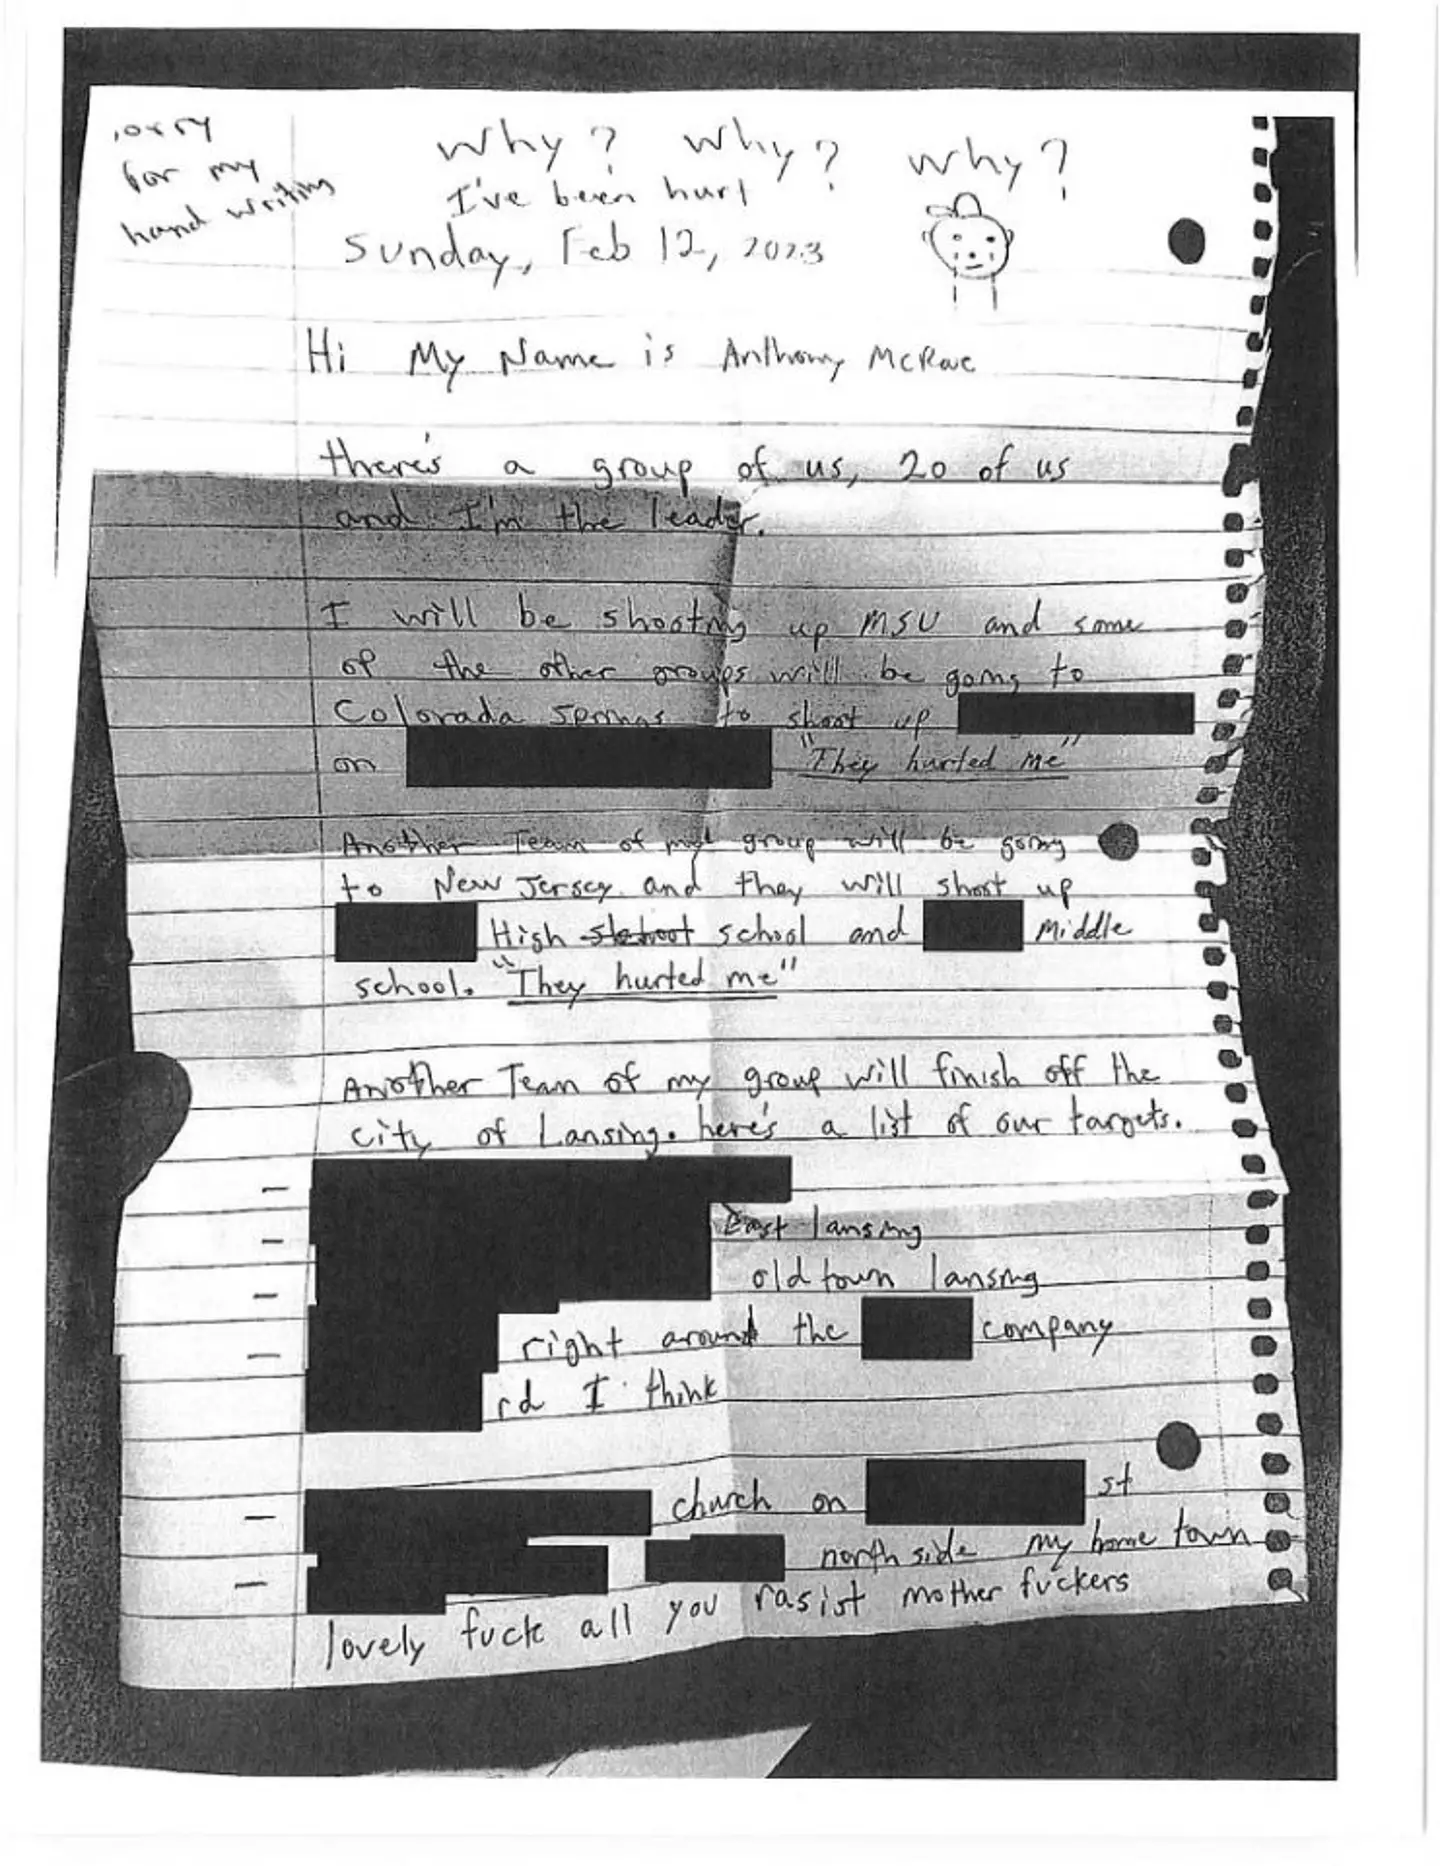 sorry
for my
hand writing
Why? Why? Why?
I've been hurt
Sunday, Feb 12, 2023
Hi My Name is Anthony McRae
there's a group of us, 20 of us
and I'm the leader.
I will be shooting up MSU and some
of the other groups will be going to
Colorada Springs to shoot up
on "They hurted me"
Another Team of my group will be going
to New Jersey and they will shoot up
High school and Middle
school. "They hurted me"
Another Team of my group will finish off the
city of Lansing. here's a list of our targets.
-
- East lansing
- old town lansing
- right around the company
rd I think
- church on st
- north side my home town
lovely fuck all you rasist mother fuckers